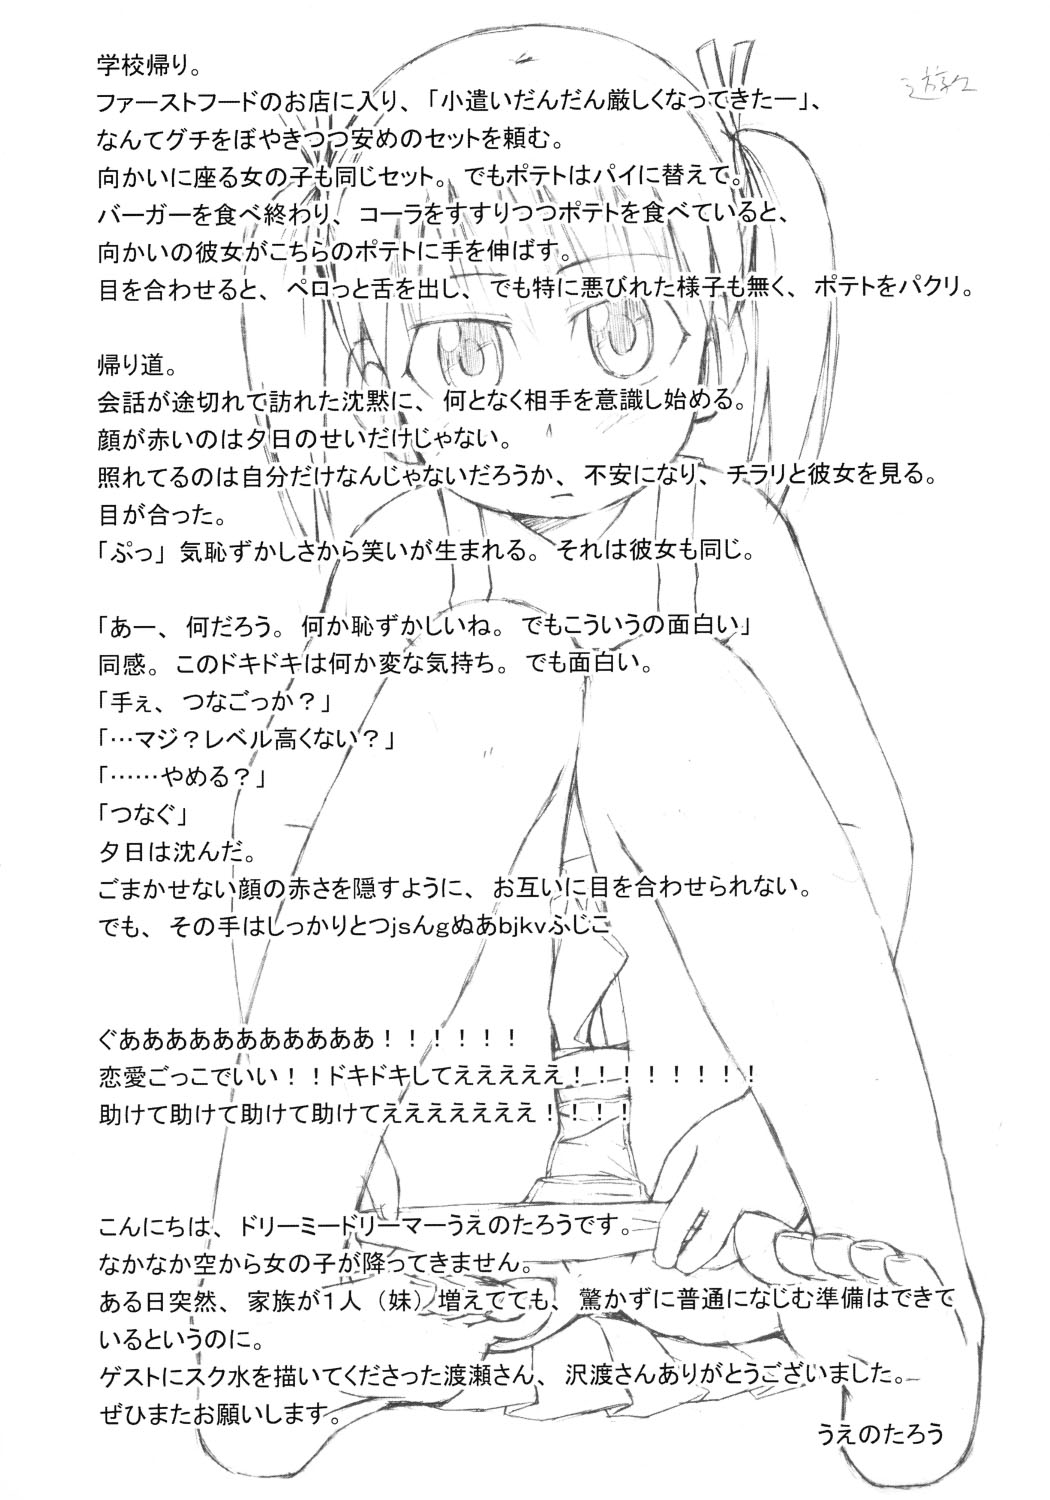 学校帰り。
ファーストフードのお店に入り、「小遣いだんだん厳しくなってきたー」、
なんてグチをぼやきつつ安めのセットを頼む。
向かいに座る女の子も同じセット。でもポテトはパイに替えて。
バーガーを食べ終わり、コーラをすすりつつポテトを食べていると、
向かいの彼女がこちらのポテトに手を伸ばす。
目を合わせると、ペロっと舌を出し、でも特に悪びれた様子も無く、ポテトをパクリ。
帰り道。
会話が途切れて訪れた沈黙に、何となく相手を意識し始める。
顔が赤いのは夕日のせいだけじゃない。
照れてるのは自分だけなんじゃないだろうか、不安になり、チラリと彼女を見る。
目が合った。
「ぷっ」気恥ずかしさから笑いが生まれる。それは彼女も同じ。
「あー、何だろう。何か恥ずかしいね。でもこういうの面白い」
同感。このドキドキは何か変な気持ち。でも面白い。
「手ぇ、つなごっか？」
「…マジ？レベル高くない？」
「……やめる？」
「つなぐ」
夕日は沈んだ。
ごまかせない顔の赤さを隠すように、お互いに目を合わせられない。
でも、その手はしっかりとつjsんgぬあbjkvふじこ
ぐあああああああああああ！！！！！！
恋愛ごっこでいい！！ドキドキしてえええええ！！！！！！！！
助けて助けて助けて助けてえええええええ！！！！
こんにちは、ドリーミードリーマーうえのたろうです。
なかなか空から女の子が降ってきません。
ある日突然、家族が１人（妹）増えてても、驚かずに普通になじむ準備はできて
いるというのに。
ゲストにスク水を描いてくださった渡瀬さん、沢渡さんありがとうございました。
ぜひまたお願いします。
うえのたろう